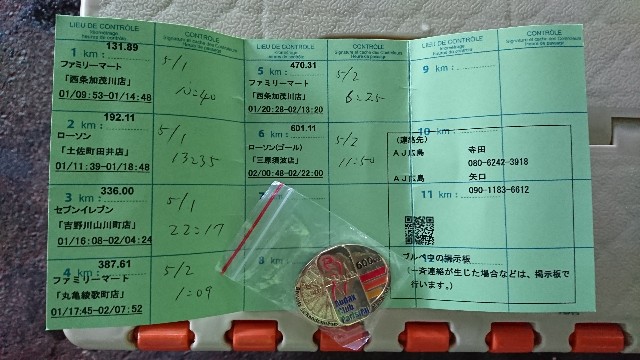 LIEU DE CONTRÔLE
kilométrage
heures de contrôle
CONTROLE
Signature et cachet des Contrôleurs
Heure de passage
LIEU DE CONTRÔLE
kilométrage
heures de contrôle
CONTROLE
Signature et cachet des Contrôleurs
Heure de passage
LIEU DE CONTRÔLE
kilométrage
Heure de contrôle
CONTROLE
Signature et cachet des Contrôleurs
Heure de passage
1 km : 131.89
ファミリーマート
「西条加茂川店」
01/09:53-01/14:48
5/1
10:40
2 km : 192.11
ローソン
「土佐町田井店」
01/11:39-01/18:48
5/1
13:35
3 km : 336.00
セブンイレブン
「吉野川山川町店」
01/16:08-02/04:24
5/1
22:17
4 km : 387.61
ファミリーマート
「丸亀綾歌町店」
01/17:45-02/07:52
5/2
1:09
5 km : 470.31
ファミリーマート
「西条加茂川店」
01/20:28-02/13:20
5/2
6:25
6 km : 601.11
ローソン(ゴール)
「三原須波店」
02/00:48-02/22:00
5/2
11:50
7
8
9 km :
10
(連絡先)
AJ広島 寺田
080-6242-3918
AJ広島 矢口
11 km : 090-1183-6612
ブルベ中の掲示板
(一斉連絡が生じた場合などは、掲示板で
行います。)
Audax
Club
Parisien